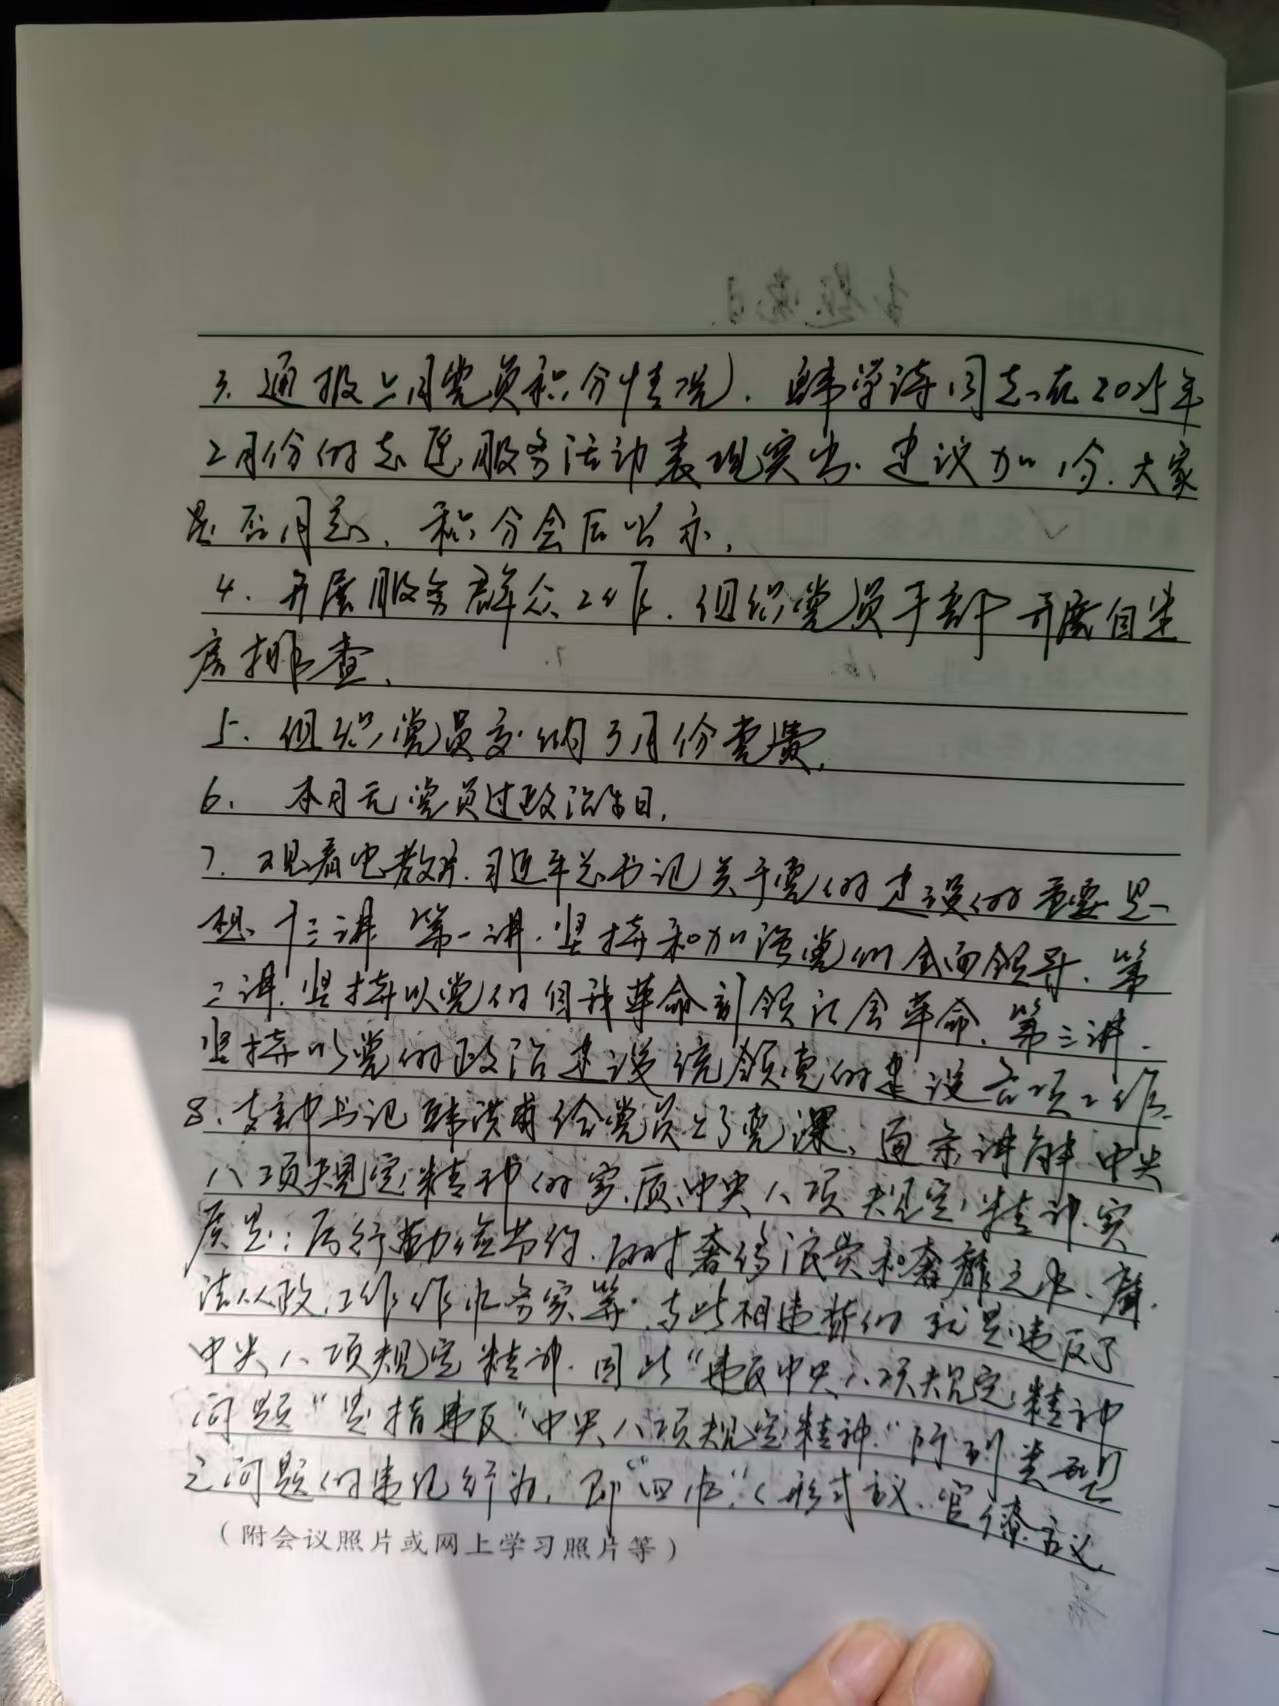 3. 通报上月党员积分情况，韩学涛同志在2025年
2月份的志愿服务活动表现突出，建议加1分，大家
是否同意，积分会后公示。
4. 开展服务群众工作，组织党员干部开展自建
房排查。
5. 组织党员交纳3月份党费。
6. 本月无党员过政治生日。
7. 观看电教片，习近平总书记关于党的建设的重要思
想十三讲 第一讲，坚持和加强党的全面领导，第
二讲，坚持以党的自我革命引领社会革命，第三讲，
坚持以党的政治建设统领党的建设各项工作。
8. 支部书记韩洪 给党员上了党课，逐条讲解中央
八项规定精神的实质，中央八项规定精神实
质是：厉行勤俭节约，反对奢侈浪费和奢靡之风，廉
洁从政，工作作风务实等，与此相违背的就是违反了
中央八项规定精神，因此“违反中央八项规定精神
问题”是指违反“中央八项规定精神”所列类型
之问题的违纪行为，即“四风”（形式主义、官僚主义、
（附会议照片或网上学习照片等）